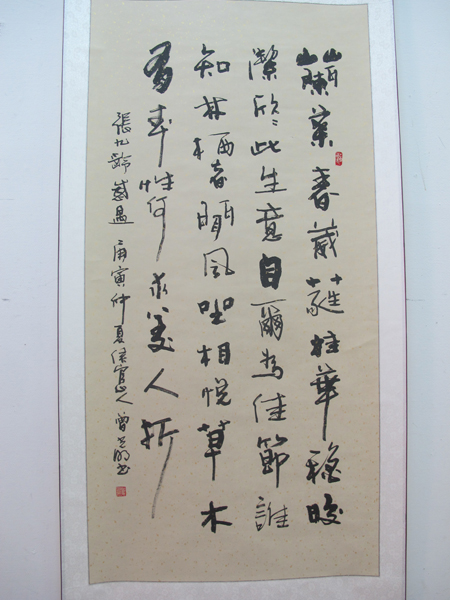 蘭葉春葳蕤桂華秋皎
潔欣欣此生意自爾為佳節誰
知林栖者聞風坐相悅草木
有本心何求美人折
張九齡感遇 庚寅仲夏侯官人曾明书